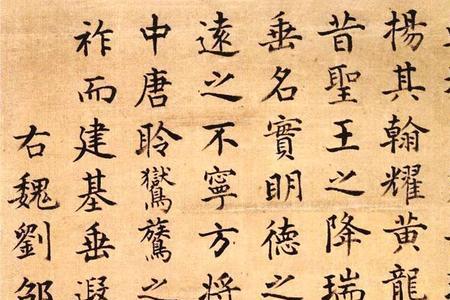 揚其翰耀黃龍
昔聖王之降瑞
垂名實明德之
遠之不寧方將
中唐聆鸑鷟之
祚而建基垂遐
右魏劉邵